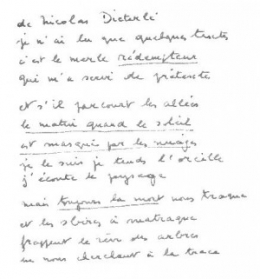 de Nicolas Dieterlé
je n'ai lu que quelques textes
c'est le merle rédempteur
qui m'a servi de prétexte
et s'il parcourt les allées
le matin quand le soleil
est masqué par les nuages
je le suis je tends l'oreille
j'écoute le paysage
mais toujours la mort nous traque
et les sbires à matraque
frappent le rêve des arbres
en nous cherchant à la trace